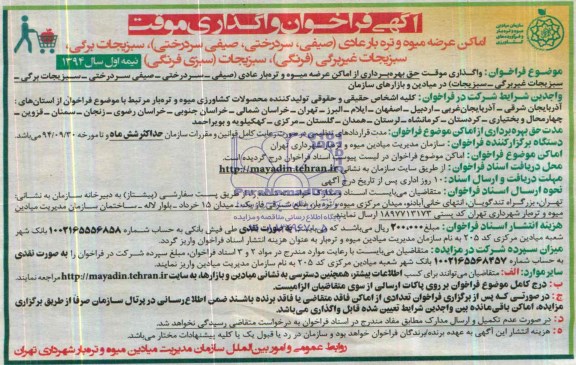 آگهی فراخوان واگذاری موقت
اماکن عرضه میوه و تره بار عادی (صیفی، سردرختی، صیفی سردرختی)، سبزیجات برگی،
سبزیجات غیربرگی (فرنگی)، سبزیجات (سبزی فرنگی)
نیمه اول سال ۱۳۹۴
موضوع فراخوان: واگذاری موقت حق بهره‌برداری از اماکن عرضه میوه و تره‌بار عادی (صیفی – سردرختی – صیفی سردرختی – سبزیجات برگی –
سبزیجات غیربرگی – سبزیجات) در میادین و بازارهای سازمان
واجدین شرایط شرکت در فراخوان: کلیه اشخاص حقیقی و حقوقی تولیدکننده محصولات کشاورزی میوه و تره‌بار مرتبط با موضوع فراخوان از استان‌های:
آذربایجان شرقی – آذربایجان غربی – اردبیل – اصفهان – ایلام – البرز – تهران – خراسان شمالی – خراسان جنوبی – خراسان رضوی – زنجان – سمنان – قزوین –
چهارمحال و بختیاری – کردستان – کرمانشاه – لرستان – همدان – گلستان – مرکزی – کهگیلویه و بویراحمد
مدت حق بهره‌برداری از اماکن موضوع فراخوان: مدت قراردادهای در صورت رعایت کامل قوانین و مقررات سازمان حداکثر شش ماه و تا مورخه ۹۴/۰۹/۳۰ می‌باشد.
دستگاه برگزارکننده فراخوان: سازمان مدیریت میادین میوه و تره‌بار شهرداری تهران
اماکن موضوع فراخوان: اماکن موضوع فراخوان در لیست پیوست اسناد فراخوان درج گردیده است.
محل دریافت اسناد فراخوان: از طریق سایت سازمان به نشانی http://mayadin.tehran.ir
مهلت دریافت و ارسال اسناد: ۱۰ روز اداری پس از تاریخ درج آگهی
نحوه ارسال اسناد فراخوان: متقاضیان می‌بایست اسناد طریق پست سفارشی (پیشتاز) به دبیرخانه سازمان به نشانی:
تهران، بزرگراه تندگویان، انتهای خانی‌آبادنو، میدان مرکزی میوه و تره‌بار، ضلع شرقی فاز یک، میدان ۱۵ خرداد – بلوار لاله – ساختمان سازمان مدیریت میادین
میوه و تره‌بار شهرداری تهران کد پستی ۱۸۹۷۷۱۳۱۷۳ ارسال نمایند.
هزینه انتشار اسناد فراخوان: ۲۰۰.۰۰۰ ریال می‌باشد که می‌بایست به صورت نقدی طی فیش بانکی به حساب شماره ۱۰۰۳۱۶۵۵۵۶۸۵۸ بانک شهر
شعبه میادین مرکزی کد ۲۰۵ به نام سازمان مدیریت میادین میوه و تره‌بار به عنوان هزینه انتشار اسناد فراخوان واریز گردد.
میزان سپرده شرکت در مزایده: متقاضیان می‌بایست با رعایت موارد مندرج در مواد ۲ و ۳ اسناد فراخوان، مبلغ سپرده شرکت در فراخوان را به صورت نقدی
به حساب شماره ۱۰۰۳۱۶۵۵۶۸۴۵۷ بانک شهر شعبه میادین مرکزی کد ۲۰۵ به نام سازمان مدیریت میادین واریز نمایند.
سایر موارد: الف: متقاضیان می‌توانند برای کسب اطلاعات بیشتر، همچنین دسترسی به نشانی میادین و بازارها، به سایت http://mayadin.tehran.ir مراجعه نمایند.
ب: درج کامل موضوع فراخوان بر روی پاکات ارسالی از سوی متقاضیان الزامیست.
ج: در صورتی که پس از برگزاری فراخوان تعدادی از اماکن فاقد متقاضی یا فاقد برنده باشند ضمن اطلاع رسانی در پرتال سازمان صرفا از طریق برگزاری
مزایده، اماکن باقی‌مانده بین واجدین شرایط تعیین شده قابل واگذاری می‌باشد.
د: در صورت عدم تکمیل و ارسال مدارک مطابق مفاد مندرج در اسناد فراخوان به درخواست متقاضی رسیدگی نخواهد شد.
ه: هزینه انتشار این آگهی به عهده برنده/برندگان فراخوان خواهد بود و سازمان در رد یا قبول یک یا کلیه پیشنهادات مختار می‌باشد.
روابط عمومی و امور بین‌الملل سازمان مدیریت میادین میوه و تره‌بار شهرداری تهران